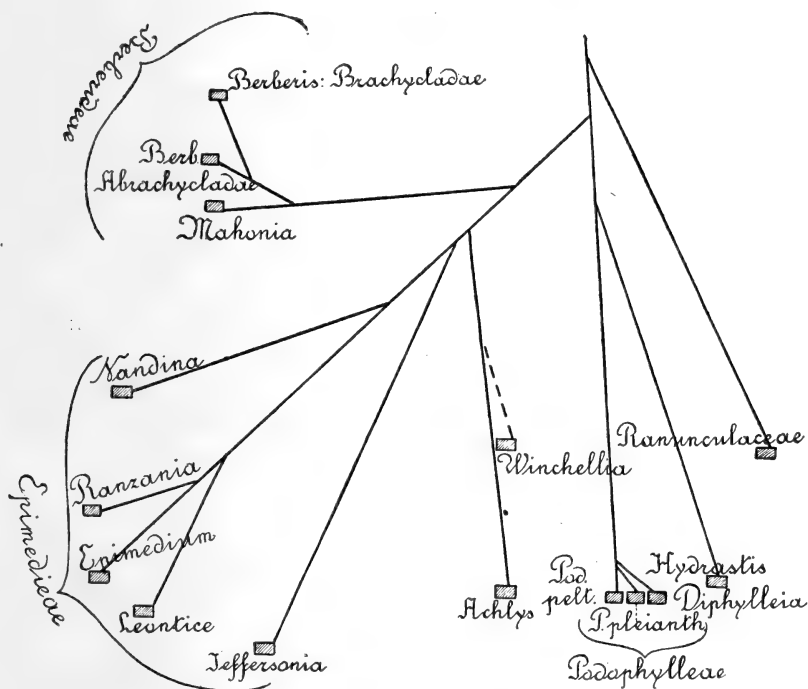 Berberideae
Berberis: Brachycladae
Berb.
Abrachycladae
Mahonia
Nandina
Ranzania
Epimedium
Leontice
Jeffersonia
Epimedieae
Winchellia
Achlys
Ranunculaceae
Hydrastis
Pod.
pelt.
Diphylleia
P.pleianth.
Podophylleae